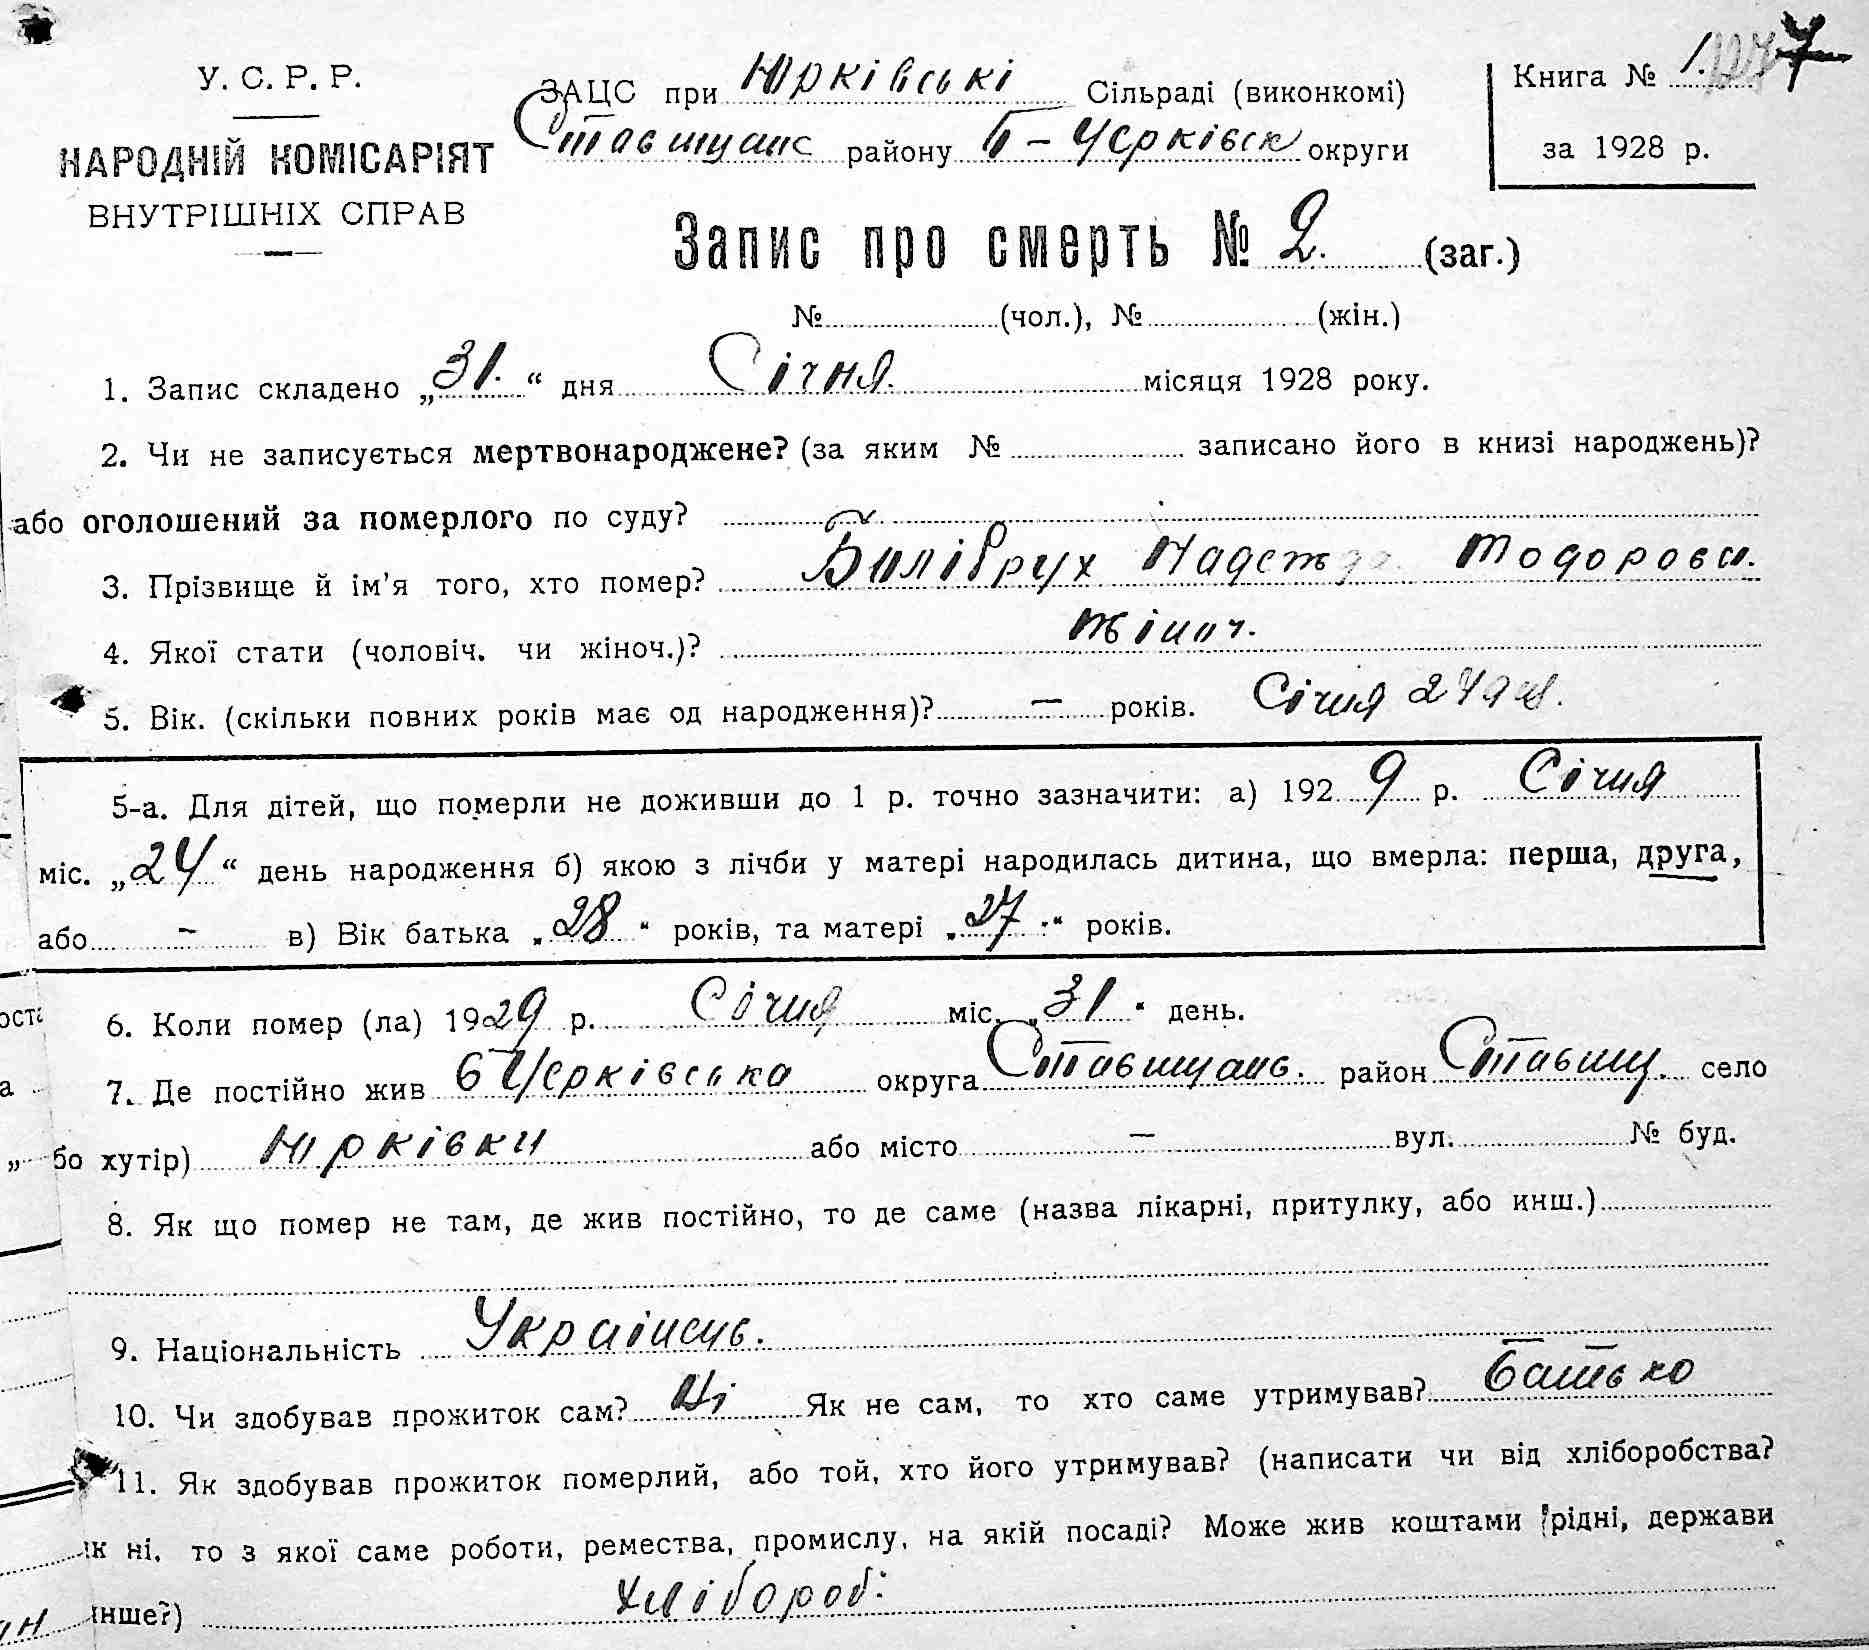 У. С. Р. Р.
НАРОДНІЙ КОМІСАРІЯТ
ВНУТРІШНІХ СПРАВ
ЗАЦС при Юрківські Сільраді (виконкомі)
Ставищанс району Б-Черківск округи
Книга № 1.
за 1928 р.
Запис про смерть № 2. (заг.)
№ (чол.), № (жін.)
1. Запис складено „31." дня Січня. місяця 1928 року.
2. Чи не записується мертвонароджене? (за яким № записано його в книзі народжень)?
або оголошений за померлого по суду?
3. Прізвище й ім'я того, хто помер? Надежда Тодорови.
4. Якої стати (чоловіч. чи жіноч.)? жіноч.
5. Вік. (скільки повних років має од народження)? — років. Січня 24 дня.
5-а. Для дітей, що померли не доживши до 1 р. точно зазначити: а) 1929 р. Січня
міс. „24" день народження б) якою з лічби у матері народилась дитина, що вмерла: перша, друга,
або – в) Вік батька „28" років, та матері „27" років.
6. Коли помер (ла) 1929 р. Січня міс. „31" день.
7. Де постійно жив БЧерківська округа Ставищанс. район Ставищ. село
бо хутір) Юрківки або місто – вул. № буд.
8. Як що помер не там, де жив постійно, то де саме (назва лікарні, притулку, або инш.)
9. Національність Українець.
10. Чи здобував прожиток сам? Ні Як не сам, то хто саме утримував? батько
11. Як здобував прожиток померлий, або той, хто його утримував? (написати чи від хліборобства?
як ні, то з якої саме роботи, ремества, промислу, на якій посаді? Може жив коштами рідні, держави
инше?) Хлібороб.